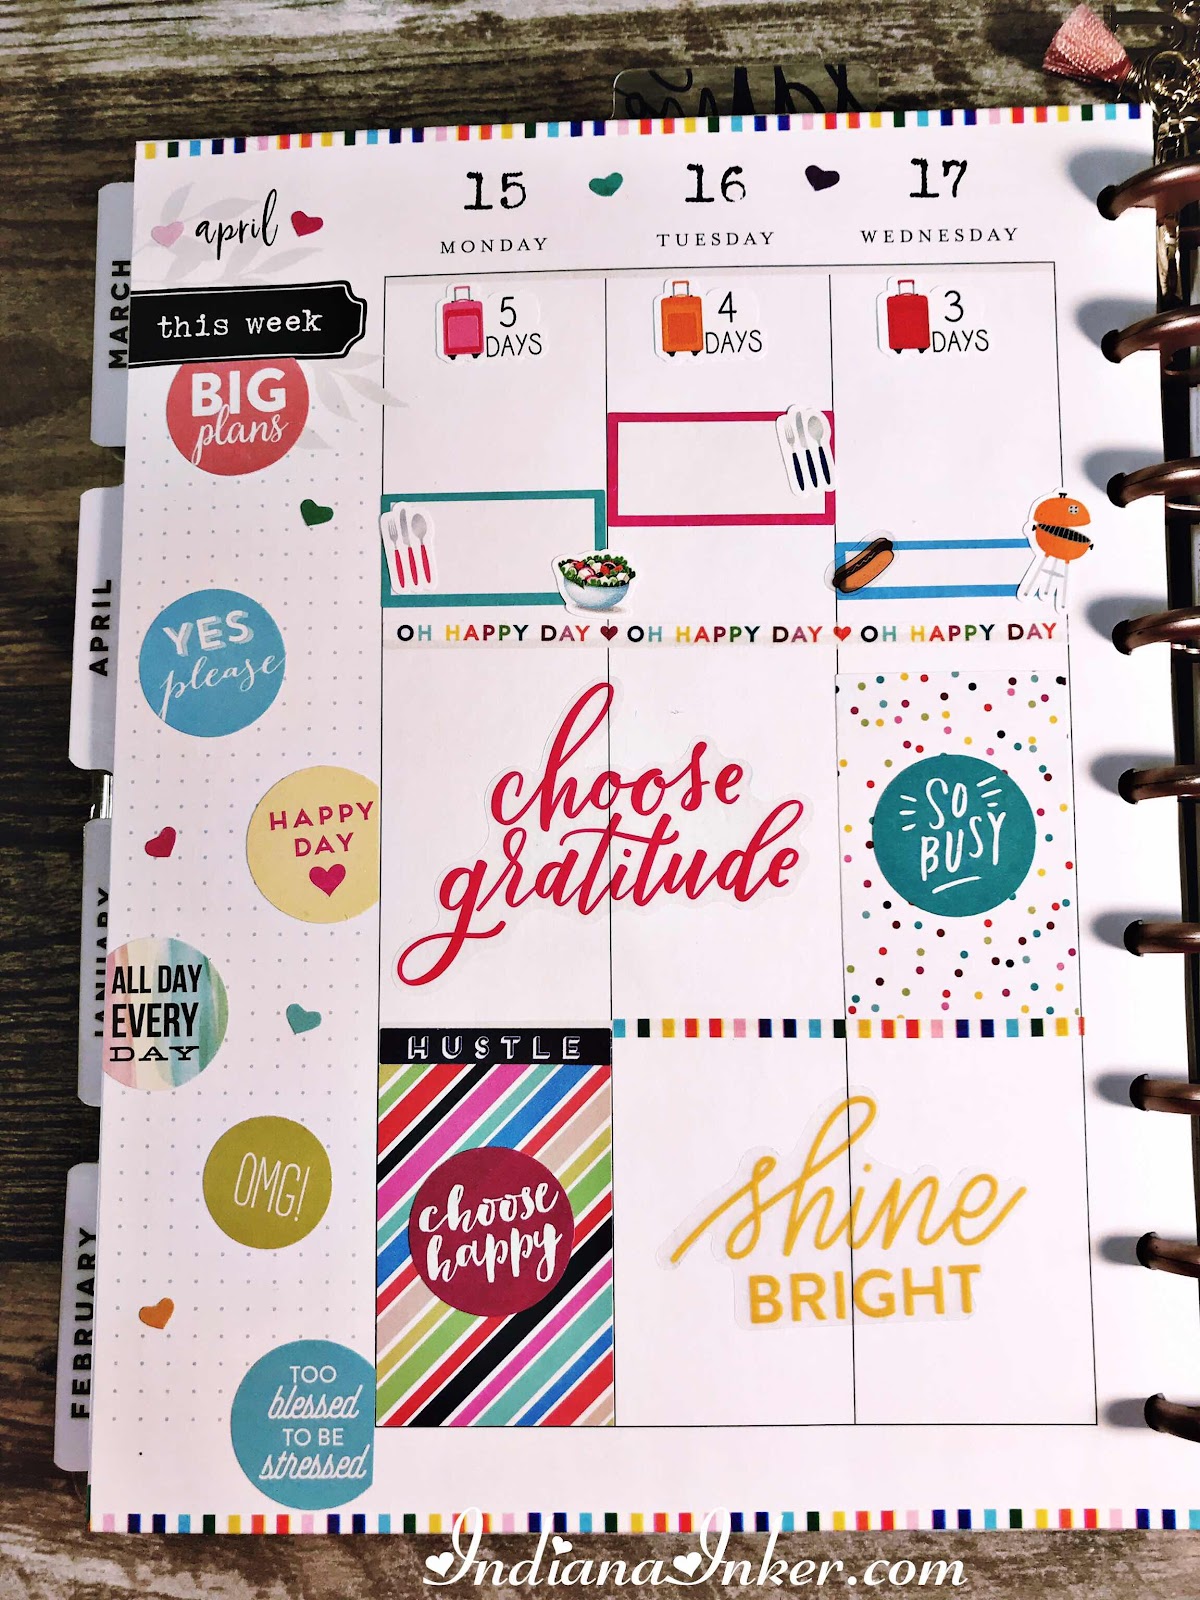 MARCH
APRIL
JANUARY
FEBRUARY
april
this week
BIG
plans
YES
please
HAPPY
DAY
ALL DAY
EVERY
DAY
OMG!
TOO
blessed
TO BE
stressed
15
MONDAY
16
TUESDAY
17
WEDNESDAY
5
DAYS
4
DAYS
3
DAYS
OH HAPPY DAY OH HAPPY DAY OH HAPPY DAY
choose
gratitude
SO
BUSY
HUSTLE
choose
happy
shine
BRIGHT
IndianaInker.com